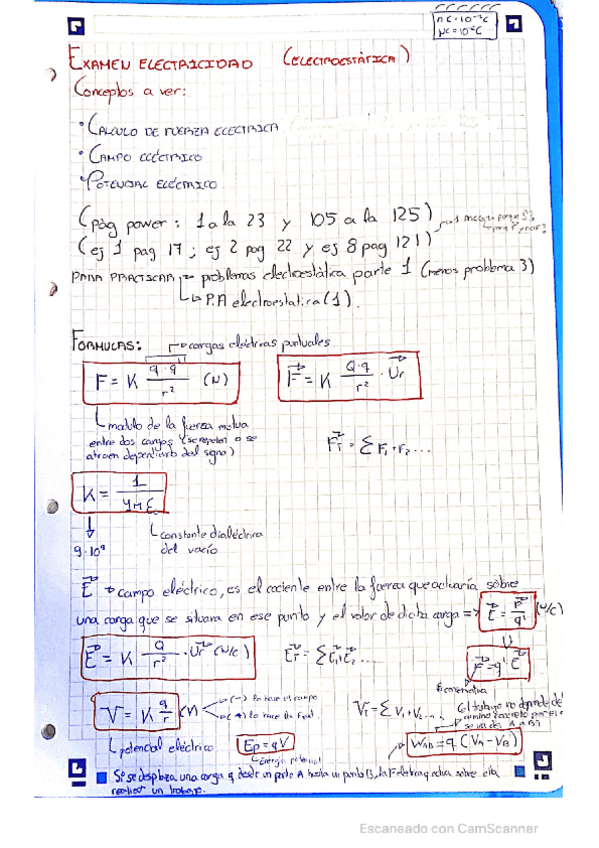 nC = 10⁻⁹C
μC = 10⁻⁶C
EXAMEN ELECTRICIDAD (ELECTROESTÁTICA)
Conceptos a ver:
· CALCULO DE FUERZA ELECTRICA
· CAMPO ELÉCTRICO
· POTENCIAL ELÉCTRICO
(pág power: 1 a la 23 y 105 a la 125)
(ej 1 pag 17; ej 2 pag 22 y ej 8 pag 121)
PARA PRACTICAR => problemas electroestática parte 1 (menos problema 3)
↳ P.A electroestatica (1).
FORMULAS: → cargas eléctricas puntuales
F = K q·q / r² (N)
F = K Q·q / r² · Ur
modulo de la fuerza mutua
entre dos cargas (se repelen o se
atraen dependiendo del signo)
FT = Σ F1 + F2 ...
K = 1 / 4πε
9·10⁹
constante dieléctrica
del vacío
E → campo eléctrico, es el cociente entre la fuerza que actuaría sobre
una carga que se situara en ese punto y el valor de dicha carga => E = F / q' (N/C)
E = K Q / r² · Ur (N/C)
ET = Σ E1, E2 ...
F = q' E
V = K q / r (V)
(-) lo hace el campo
(+) lo hace
VT = Σ V1 + V2 ...
El trabajo no depende del
potencial eléctrico
Ep = qV
Energía potencial
WAB = q (VA - VB)
Si se desplaza una carga q desde un punto A hasta un punto B, la F eléctrica que actua sobre ella
realiza un trabajo.
Escaneado con CamScanner